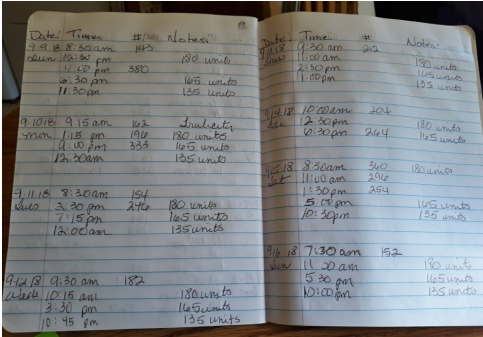 Date: Times #: Notes:
9.9.18 8:30am 143
Sun 12:30 pm 180 units
4:00 pm 380
6:30 pm 165 units
11:30pm 135 units
9.10.18 9:15 am 162 Trulicity
mon 1:15 pm 196 180 units
9:00 pm 333 165 units
12:30am 135 units
9.11.18 8:30am 154
Tues 3:30 pm 246 180 units
7:15pm 165 units
12:00am 135 units
9.12.18 9:30 am 182
Weds 10:15 am 180 units
3:30 pm 165 units
10:45 pm 135 units
Date: Time: #: Notes:
9:30 am 212
11:00 am 180 units
2:30pm 165 units
1:00pm 135 units
9.14.18 10:00am 204
12:30pm 180 units
6:30pm 264 165 units
8:30am 360 180 units
Sat 11:00 am 296
1:30pm 254
5:00pm 165 units
10:30pm 135 units
7:30am 152
Sun 11:00 am 180 units
5:30 pm 165 units
10:00pm 135 units